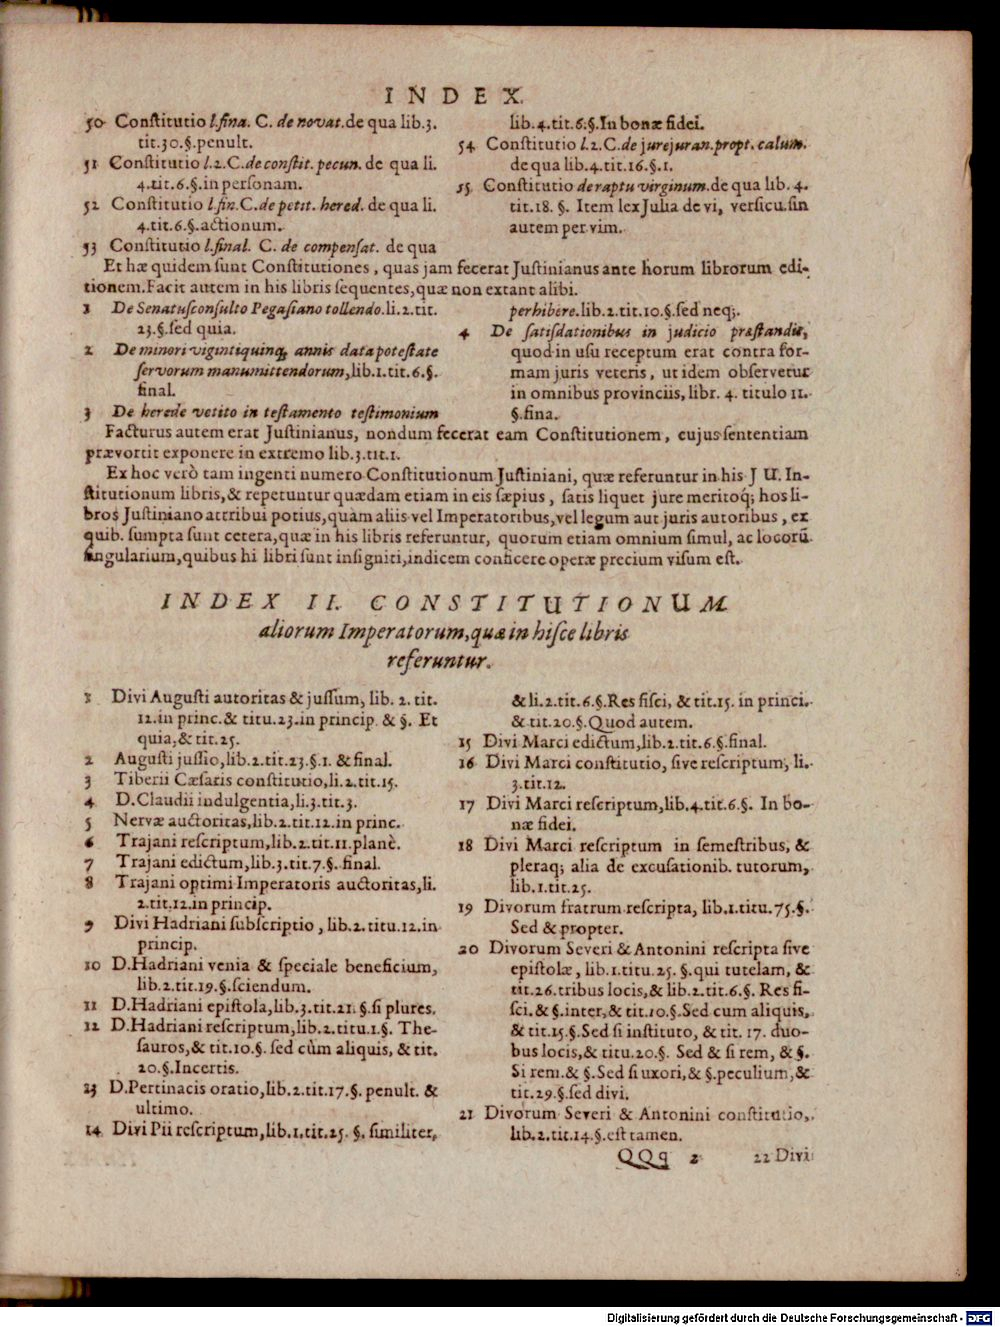 INDEX.
50 Constitutio l.fina. C. de novat. de qua lib.3.
tit.30.§.penult.
51 Constitutio l.2.C.de constit. pecun. de qua li.
4.tit.6.§.in personam.
52 Constitutio l.fin.C.de petit. hered. de qua li.
4.tit.6.§.actionum.
53 Constitutio l.final. C. de compensat. de qua
lib.4.tit.6.§.In bonæ fidei.
54 Constitutio l.2.C.de jurejuran.propt. calum.
de qua lib.4.tit.16.§.1.
55 Constitutio de raptu virginum.de qua lib. 4.
tit.18. §. Item lex Julia de vi, versicu.sin
autem per vim.
Et hæ quidem sunt Constitutiones, quas jam fecerat Justinianus ante horum librorum edi-
tionem.Facit autem in his libris sequentes,quæ non extant alibi.
1 De Senatusconsulto Pegasiano tollendo.li.2.tit.
23.§.sed quia.
2 De minori vigintiquinq; annis data potestate
servorum manumittendorum,lib.1.tit.6.§.
final.
3 De herede vetito in testamento testimonium
perhibere.lib.2.tit.10.§.sed neq;.
4 De satisdationibus in judicio præstandis,
quod in usu receptum erat contra for-
mam juris veteris, ut idem observetur
in omnibus provinciis, libr. 4. titulo 11.
§.fina.
Facturus autem erat Justinianus, nondum fecerat eam Constitutionem, cujus sententiam
prævortit exponere in extremo lib.3.tit.1.
Ex hoc verò tam ingenti numero Constitutionum Justiniani, quæ referuntur in his J U. In-
stitutionum libris,& repetuntur quædam etiam in eis sæpius, satis liquet jure meritoq́; hos li-
bros Justiniano attribui potius,quàm aliis vel Imperatoribus,vel legum aut juris autoribus, ex
quib. sumpta sunt cetera,quæ in his libris referuntur, quorum etiam omnium simul, ac locorū
singularium,quibus hi libri sunt insigniti,indicem conficere operæ precium visum est.
INDEX II. CONSTITUTIONUM
aliorum Imperatorum,quæ in hisce libris
referuntur.
1 Divi Augusti autoritas & jussum, lib. 2. tit.
12.in princ.& titu.23.in princip. & §. Et
quia,& tit.25.
2 Augusti jussio,lib.2.tit.23.§.1. & final.
3 Tiberii Cæsaris constitutio,li.2.tit.15.
4 D.Claudii indulgentia,li.3.tit.3.
5 Nervæ auctoritas,lib.2.tit.12.in princ.
6 Trajani rescriptum,lib.2.tit.11.planè.
7 Trajani edictum,lib.3.tit.7.§.final.
8 Trajani optimi Imperatoris auctoritas,li.
2.tit.12.in princip.
9 Divi Hadriani subscriptio, lib.2.titu.12.in
princip.
10 D.Hadriani venia & speciale beneficium,
lib.2.tit.19.§.sciendum.
11 D.Hadriani epistola,lib.3.tit.21.§.si plures.
12 D.Hadriani rescriptum,lib.2.titu.1.§. The-
sauros,& tit.10.§. sed cùm aliquis, & tit.
20.§.Incertis.
13 D.Pertinacis oratio,lib.2.tit.17.§. penult. &
ultimo.
14 Divi Pii rescriptum,lib.1.tit.25. §. similiter,
& li.2.tit.6.§.Res fisci, & tit.15. in princi.
& tit.20.§.Quod autem.
15 Divi Marci edictum,lib.2.tit.6.§.final.
16 Divi Marci constitutio, sive rescriptum, li.
3.tit.12.
17 Divi Marci rescriptum,lib.4.tit.6.§. In bo-
næ fidei.
18 Divi Marci rescriptum in semestribus, &
pleraq; alia de excusationib. tutorum,
lib.1.tit.25.
19 Divorum fratrum rescripta, lib.1.titu.75.§.
Sed & propter.
20 Divorum Severi & Antonini rescripta sive
epistolæ, lib.1.titu.25. §.qui tutelam, &
tit.26.tribus locis,& lib.2.tit.6.§. Res fi-
sci.& §.inter,& tit.10.§.Sed cum aliquis,
& tit.15.§.Sed si instituto, & tit. 17. duo-
bus locis,& titu.20.§. Sed & si rem, & §.
Si rem.& §.Sed si uxori,& §.peculium,&
tit.29.§.sed divi.
21 Divorum Severi & Antonini constitutio,
lib.2.tit.14.§.est tamen.
QQq 2 22 Divi
Digitalisierung gefördert durch die Deutsche Forschungsgemeinschaft - DFG